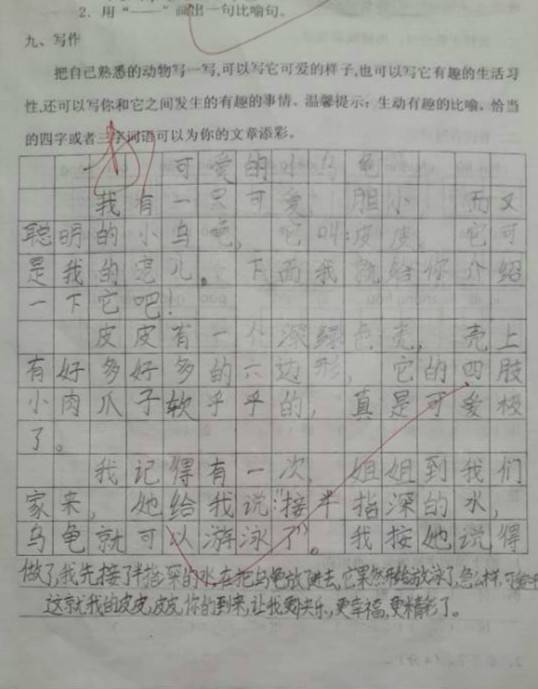 2. 用“——”画出一句比喻句。
九、写作
把自己熟悉的动物写一写,可以写它可爱的样子,也可以写它有趣的生活习
性,还可以写你和它之间发生的有趣的事情。温馨提示：生动有趣的比喻、恰当
的四字或者三字词语可以为你的文章添彩。
可爱的小乌龟
我有一只可爱、胆小、而又
聪明的小乌龟，它叫:皮皮。它可
是我的宠儿。下面我就给你介绍
一下它吧!
皮皮有一个深绿色壳，壳上
有好多好多的六边形，它的四肢
小肉爪子软乎乎的，真是可爱极
了。
我记得有一次，姐姐到我们
家来，她给我说:“接半指深的水，
乌龟就可以游泳了”。我按她说得
做了,我先接了半指深的水,在把乌龟放进去,它果然开始游泳了,
这就我的皮皮,皮皮你的到来,让我更快乐,更幸福,更精彩了。